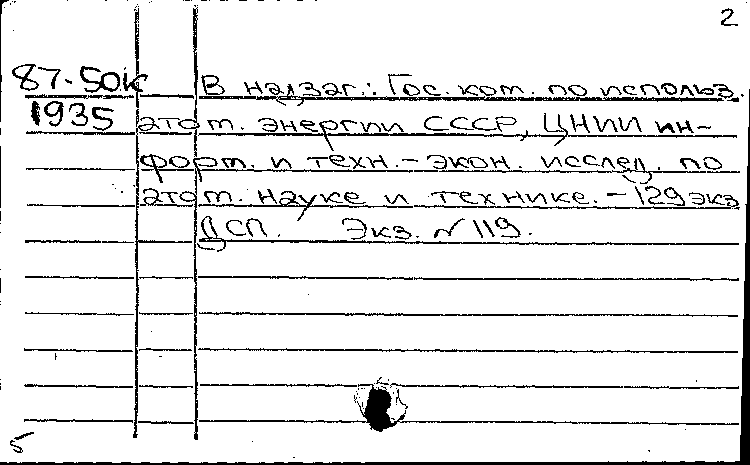 2
87-50к В надзаг.: Гос. ком. по использ.
1935 атом. энергии СССР, ЦНИИ ин-
форм. и техн.-экон. исслед. по
атом. науке и технике. - 129 экз
ДСП. Экз. №119.
5